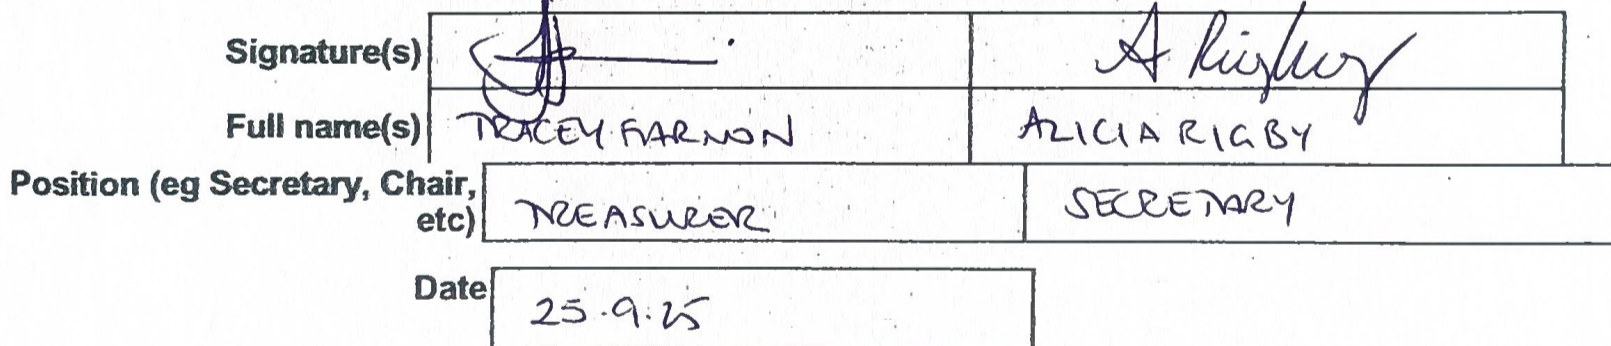 Signature(s) A Rigby
Full name(s) TRACEY FARNON ALICIA RIGBY
Position (eg Secretary, Chair,
etc) TREASURER SECRETARY
Date 25.9.25